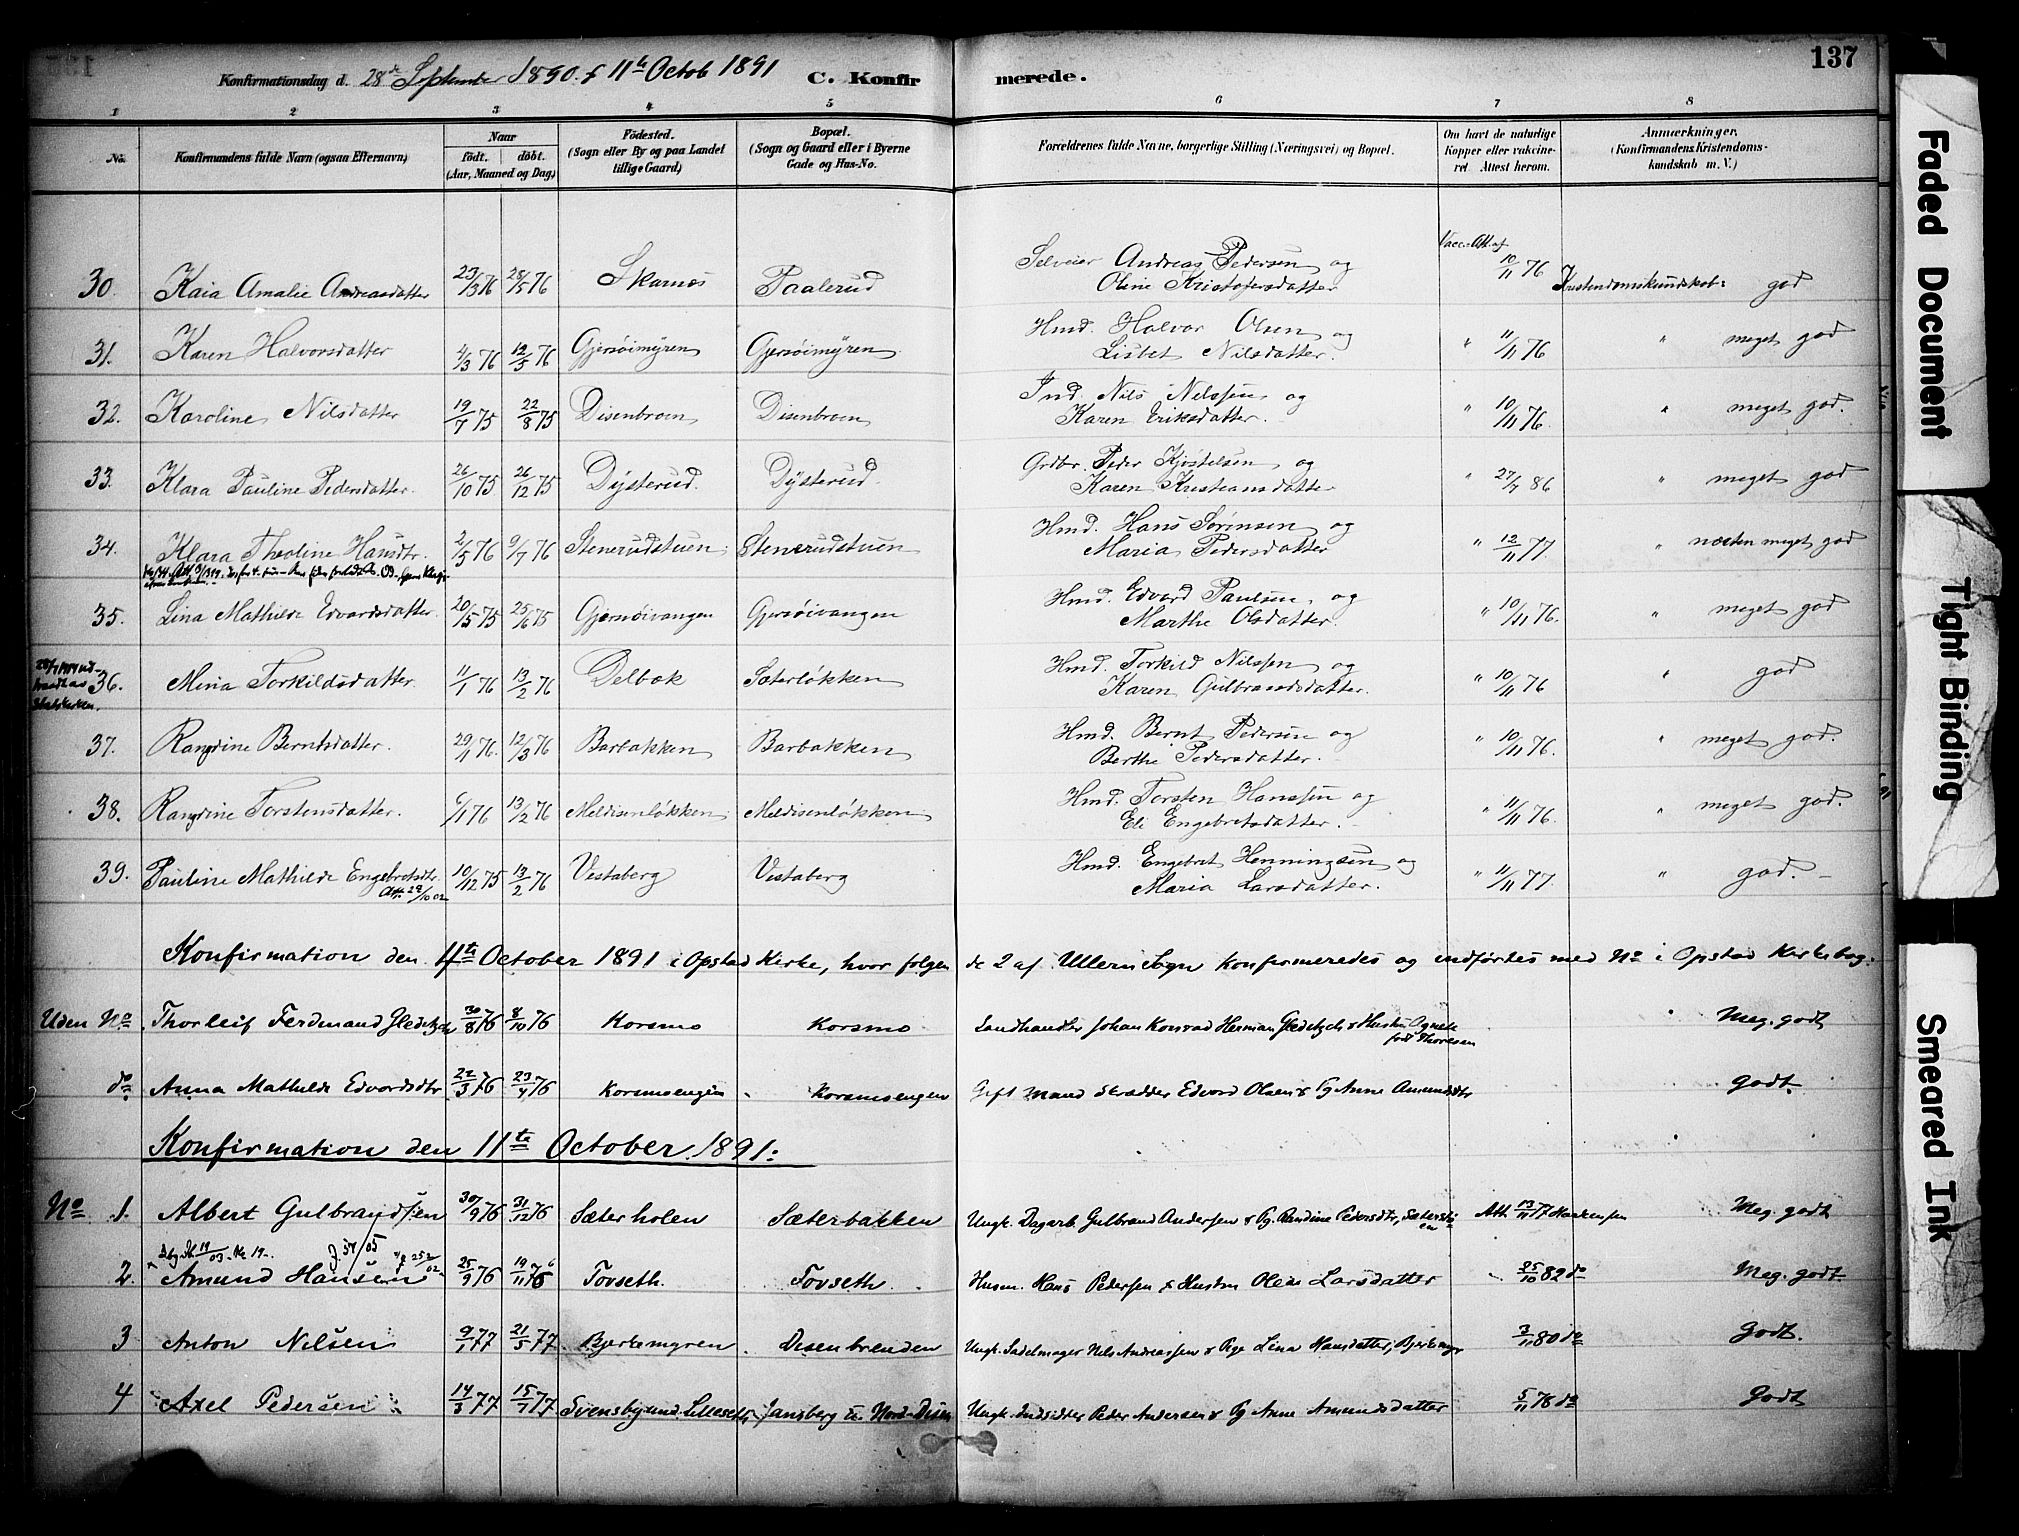 Konfirmationsdag d. 28de September 1890. & 11te Octob 1891 C. Konfirmerede. 137
1 2 3 4 5 6 7 8
No. Konfirmandens fulde Navn (ogsaa Efternavn) Naar født. døbt. (Aar, Maaned og Dag) Fødested. (Sogn eller By og paa Landet tillige Gaard) Bopæl. (Sogn og Gaard eller i Byerne Gade og Hus-No. Forældrenes fulde Navne, borgerlige Stilling (Næringsvei) og Bopæl. Om havt de naturlige Kopper eller vakcineret. Attest herom. Anmærkninger. (Konfirmandens Kristendomskundskab m. V.)
30. Kaia Amalie Andreasdatter 23/3 76 28/5 76 Skarnes Paalerud Selveier Andreas Pedersen og Oline Kristofersdatter Vacc.-Att. af 10/11 76 Kristendomskundskab: god
31. Karen Halvorsdatter 4/3 76 12/5 76 Gjersøimyren Gjersøimyren Hmd. Halvor Olsen og Lisbet Nilsdatter. " 11/11 76 " meget god
32. Karoline Nilsdatter 19/7 75 22/8 75 Disenbroen Disenbroen Ind. Nils Nilssen og Karen Eriksdatter. " 10/11 76. " meget god.
33. Klara Pauline Pedersdatter. 26/10 75 26/12 75 Dysterud. Dysterud. Grdbr. Peder Kjøstelsen og Karen Kristiansdatter " 27/7 86 " meget god
34. Klara Theoline Hansdtr. 2/5 76 9/7 76 Stenerudstuen Stenerudstuen Hmd. Hans Sørensen og Maria Pedersdatter " 12/11 77. " næsten meget god
35. Lina Mathilde Edvardsdatter. 20/5 75 25/6 75 Gjersøivangen Gjersøivangen Hmd. Edvard Paulsen og Marthe Olsdatter. " 10/11 76. " meget god
36. Mina Torkildsdatter. 11/1 76 13/2 76 Delbak Sæterløkken Hmd. Torkild Nilssen og Karen Gulbrandsdatter. " 10/11 76 " god
37. Rangdine Berntsdatter. 29/1 76. 12/3 76 Barbakken Barbakken Hmd. Bernt Pedersen og Berthe Pedersdatter. " 10/11 76. " meget god.
38. Rangdine Torstensdatter. 6/1 76 13/2 76 Meldisenløkken Meldisenløkken Hmd. Torsten Hanssen og Eli Engebretsdatter. " 11/11 76. " meget god.
39. Pauline Mathilde Engebretsdtr. 10/12 75 13/2 76 Vestaberg Vestaberg Hmd. Engebret Henningsen og Maria Larsdatter. " 11/11 77. " god.
Att. 28/10 02
Konfirmation den 4te October 1891 i Opstad Kirke, hvor følgende 2 af Ullern Sogn konfirmeredes og indførtes med No i Opstad Kirkebog:
Uden No Thorleif Ferdinand Gleditsch 30/8 76 8/10 76 Korsmo Korsmo Landhandler Johan Konrad Herman Gleditsch & Hustru Agnete født Thoresen Meg. godt
do Anna Mathilde Edvardsdtr 22/3 76 23/4 76 Korsmoengen Korsmoengen Gift Mand Skrædder Edvard Olsen & Pg Anne Amundsdtr Godt.
Konfirmation den 11te October 1891:
No 1. Albert Gulbrandsen 30/9 76 31/12 76 Sæterholen Sæterbakken Ungk. Dagarb. Gulbrand Andersen & Pg. Randine Pedersdtr, Att. 13/11 77 Haakensen Meg. godt
2. Amund Hansen 25/9 76 19/11 76 Tovseth. Tovseth. Husm. Hans Pedersen & Hustru Oline Larsdatter 25/10 82 do Meg. godt
3 Anton Nilsen 9/1 77 21/5 77 Bjerkemyren. Disenbrenden Ungk. Sadelmager Nils Andreassen & Pige Lina Hansdatter, Bjerkemyr 3/11 80 do Godt.
4 Axel Pedersen 14/3 77 15/7 77 Svensby und. Lilleseth Jansberg u. Nord-Disen Ungk. Indsidder Peder Andersen & Pg Anne Amundsdatter 5/11 78 do Godt
Faded Document
Tight Binding
Smeared Ink